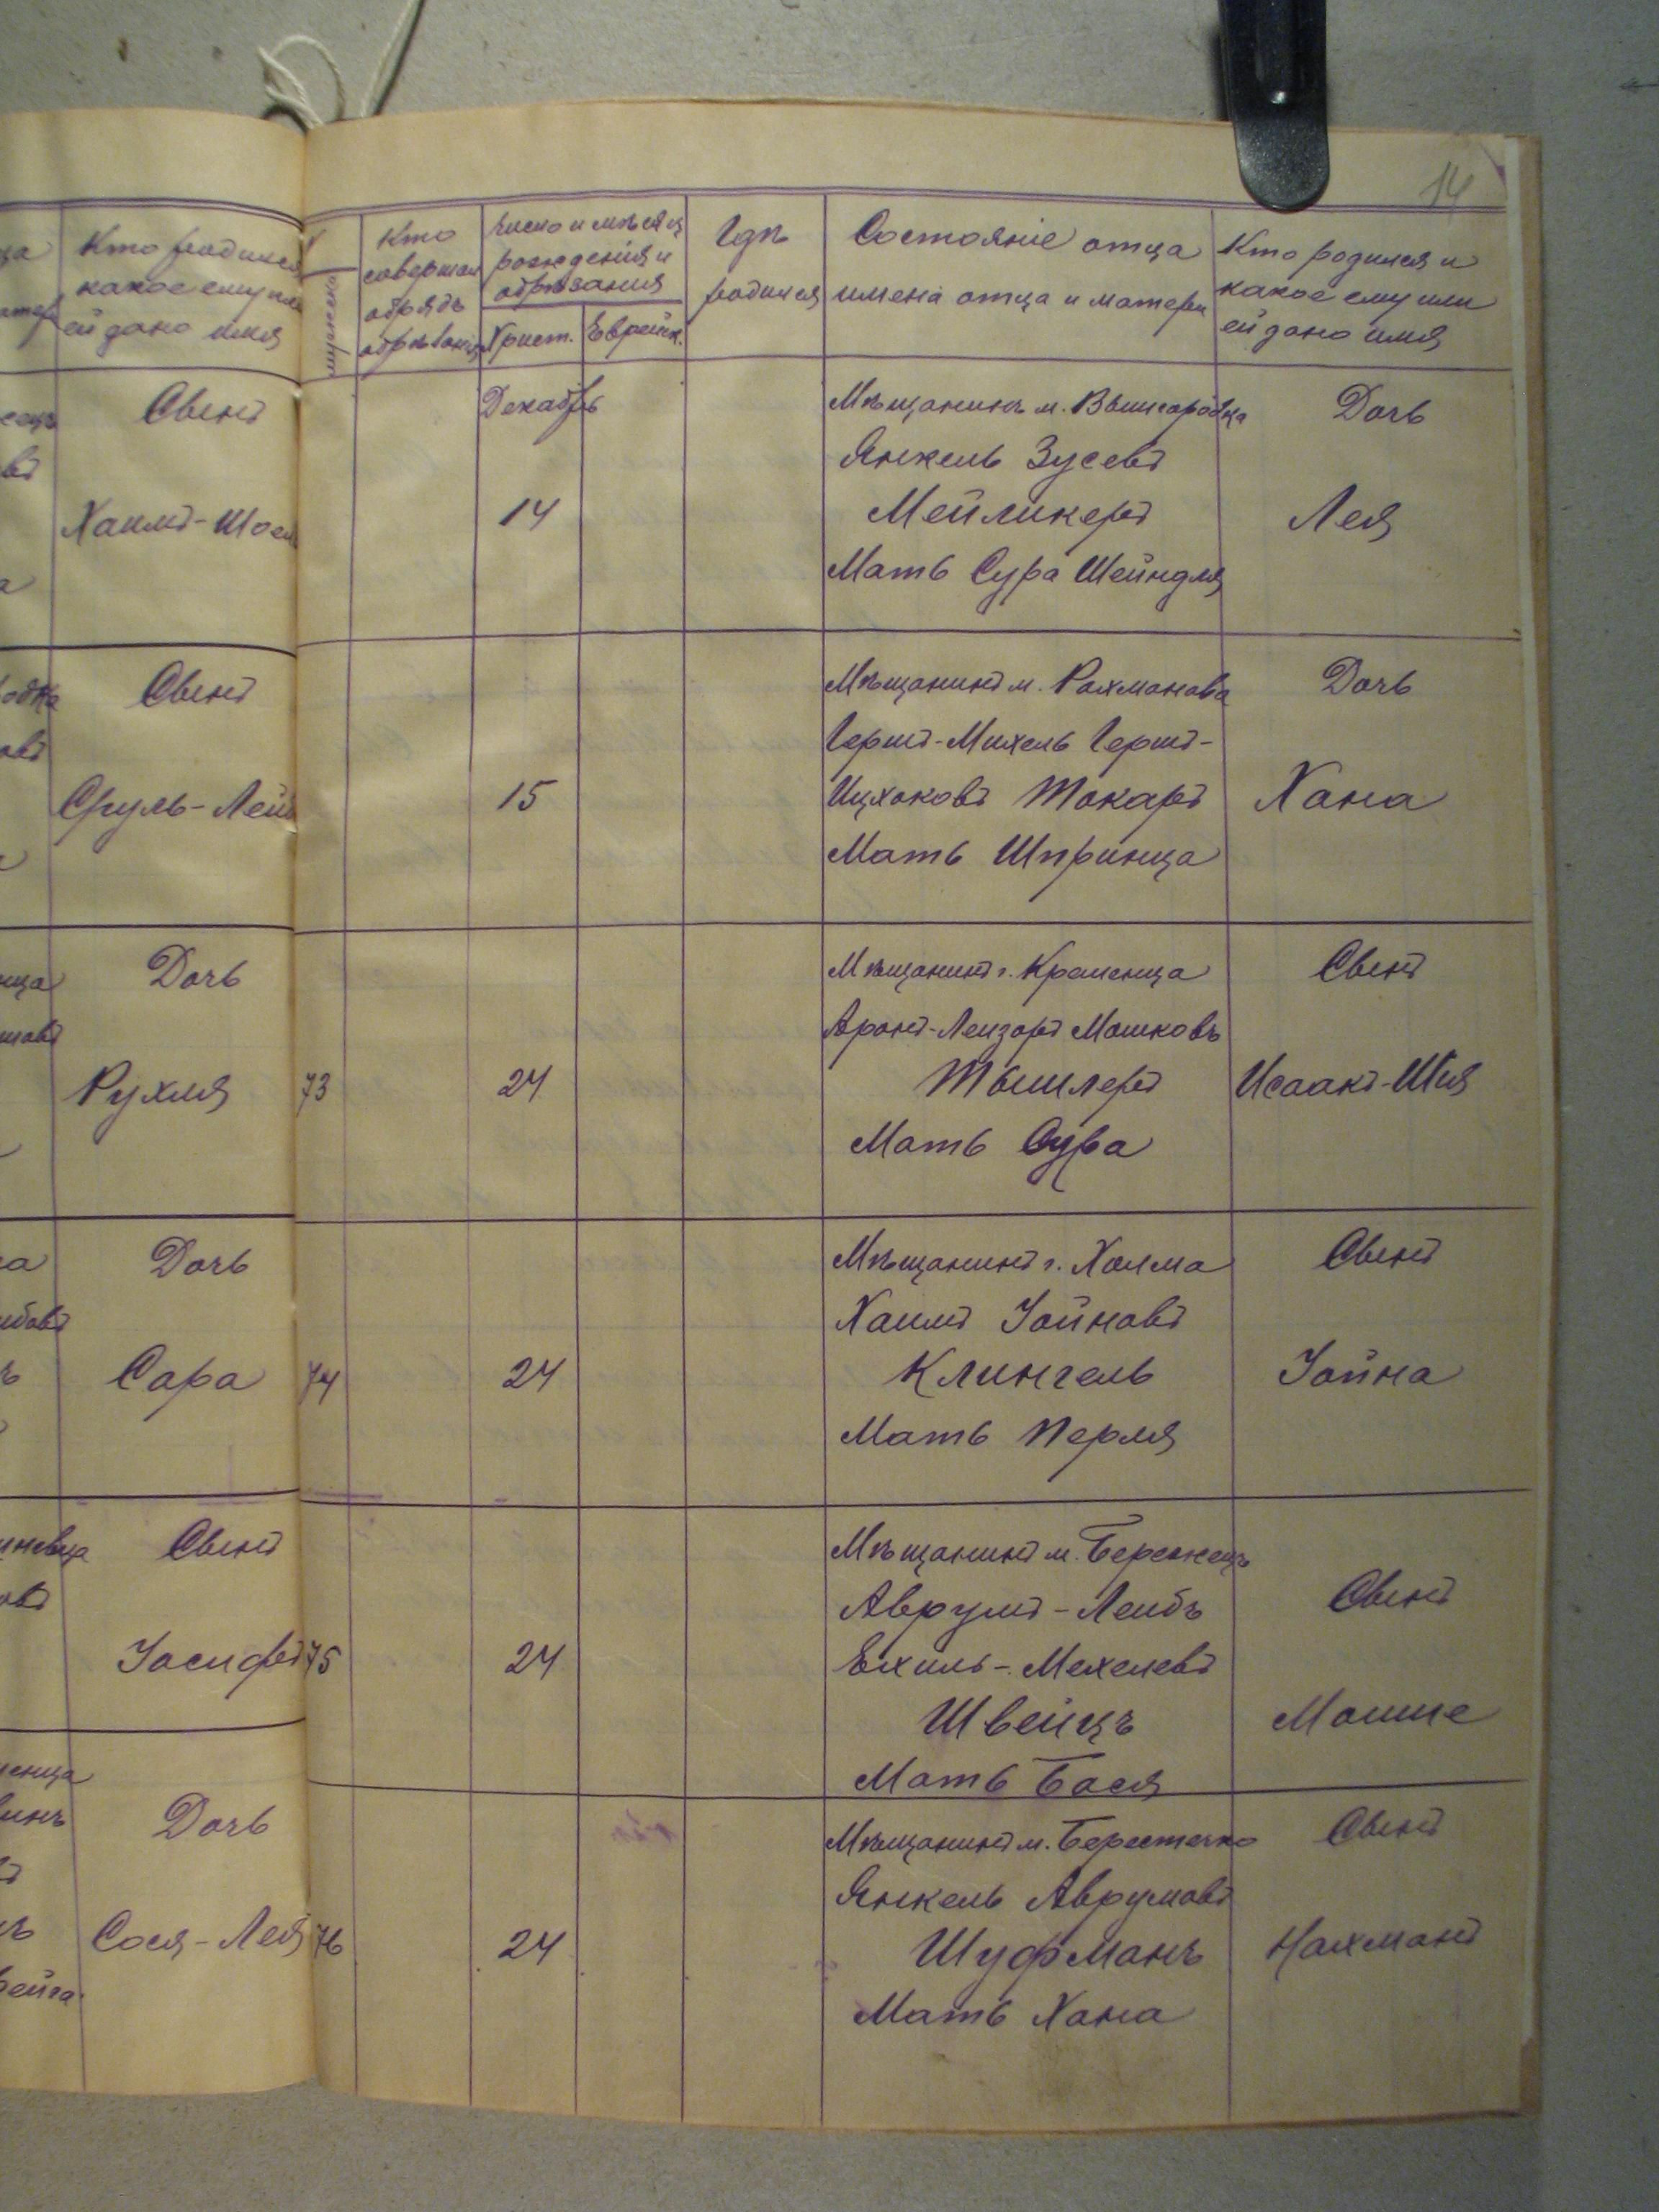 14
Кто родился
какое ему или
ей дано имя
Свинъ
Хаимъ-Шоел
Свинъ
Сруль-Лейб
Дочь
Рухля
Дочь
Сара
Свинъ
Іосифъ
Дочь
Сося-Лея
мужеска
Кто
совершал
обрядъ
обрѣзанія
Число и мѣсяц
рождения и
обрѣзания
Христ.
Еврейск.
Гдѣ
родился
Состояніе отца
имена отца и матери
Кто родился и
какое ему или
ей дано имя
Декабрь
14
Мѣщанинъ м. Вышгородка
Янкель Зусевъ
Мейликеръ
Мать Сура Шейндля
Дочь
Лея
15
Мѣщанинъ м. Рахманова
Гершъ-Михель Гершъ-
Ицхоковъ Токаръ
Мать Шпринца
Дочь
Хана
73
24
Мѣщанинъ г. Кременца
Аронъ-Лейзоръ Мошковъ
Тышлеръ
Мать Сура
Сынъ
Исаакъ-Шія
74
24
Мѣщанинъ г. Холма
Хаимъ Іойновъ
Клингель
Мать Перля
Сынъ
Іойна
75
24
Мѣщанинъ м. Бережецъ
Аврумъ-Лейбъ
Ехиль-Мехелевъ
Швейцъ
Мать Бася
Сынъ
Мошше
76
24
Мѣщанинъ м. Берестечко
Янкель Аврумовъ
Шуфманъ
Мать Хана
Сынъ
Нахманъ